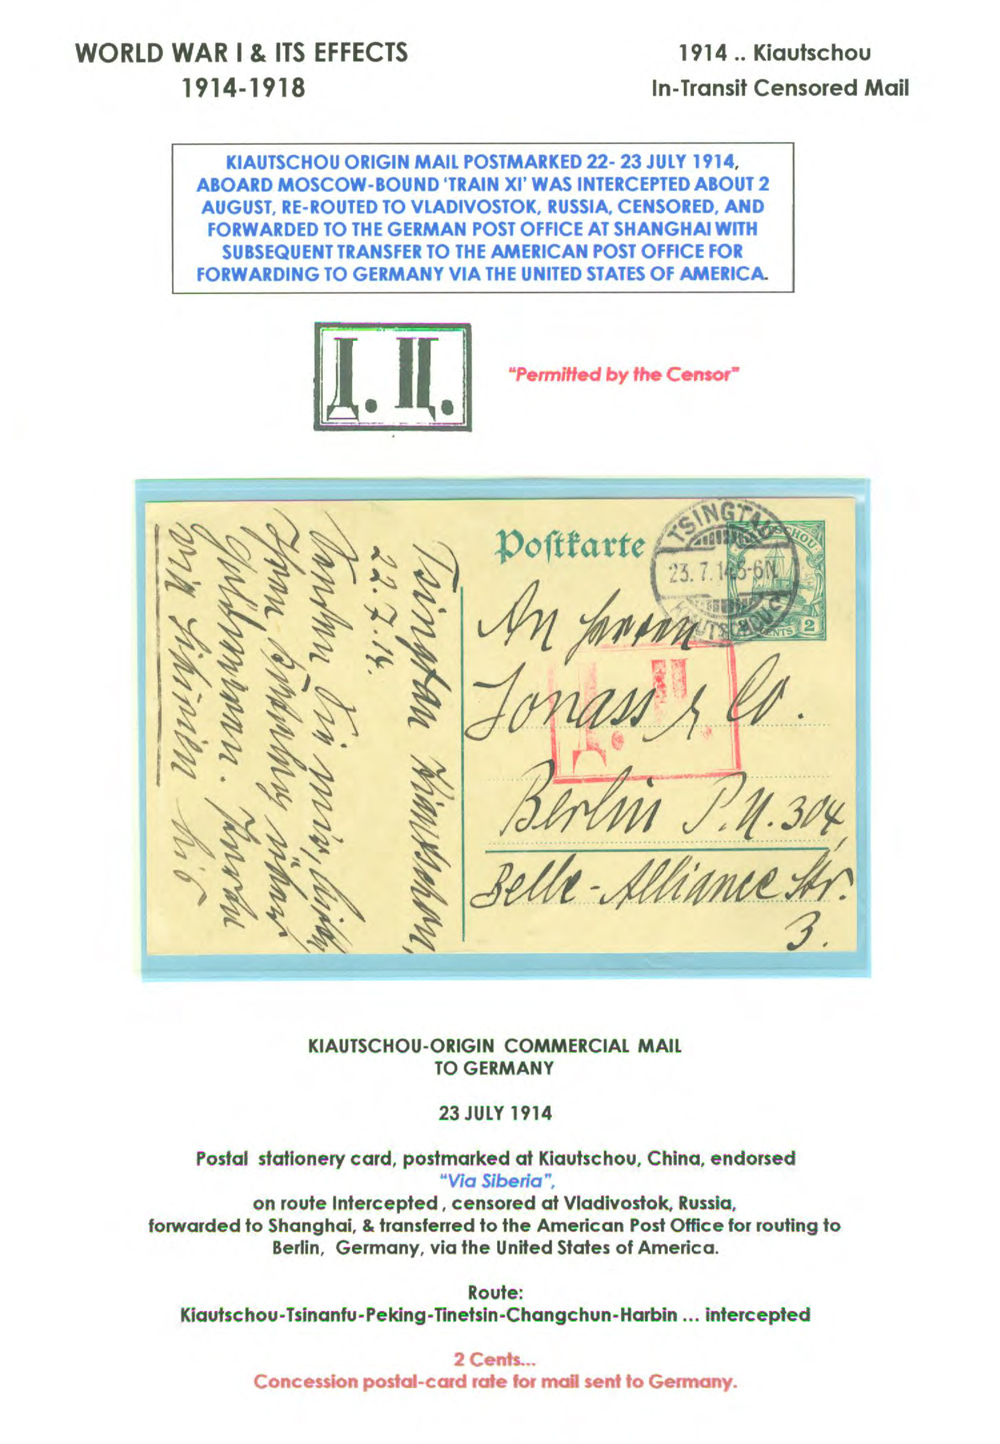 WORLD WAR I & ITS EFFECTS
1914-1918
1914 .. Kiautschou
In-Transit Censored Mail
KIAUTSCHOU ORIGIN MAIL POSTMARKED 22- 23 JULY 1914,
ABOARD MOSCOW-BOUND 'TRAIN XI' WAS INTERCEPTED ABOUT 2
AUGUST, RE-ROUTED TO VLADIVOSTOK, RUSSIA, CENSORED, AND
FORWARDED TO THE GERMAN POST OFFICE AT SHANGHAI WITH
SUBSEQUENT TRANSFER TO THE AMERICAN POST OFFICE FOR
FORWARDING TO GERMANY VIA THE UNITED STATES OF AMERICA.
Д. Ц.
"Permitted by the Censor"
Postkarte
TSINGTAU
23.7.14.5-6N.
KIAUTSCHOU
2
CENTS
An Herrn
Jonass & Co.
Berlin P.U. 304
Belle-Alliance Str.
3.
Д. Ц.
Tsingtau Kiautschou,
22.7.14.
via Sibirien
KIAUTSCHOU-ORIGIN COMMERCIAL MAIL
TO GERMANY
23 JULY 1914
Postal stationery card, postmarked at Kiautschou, China, endorsed
"Via Siberia",
on route Intercepted , censored at Vladivostok, Russia,
forwarded to Shanghai, & transferred to the American Post Office for routing to
Berlin, Germany, via the United States of America.
Route:
Kiautschou-Tsinanfu-Peking-Tinetsin-Changchun-Harbin ... intercepted
2 Cents...
Concession postal-card rate for mail sent to Germany.